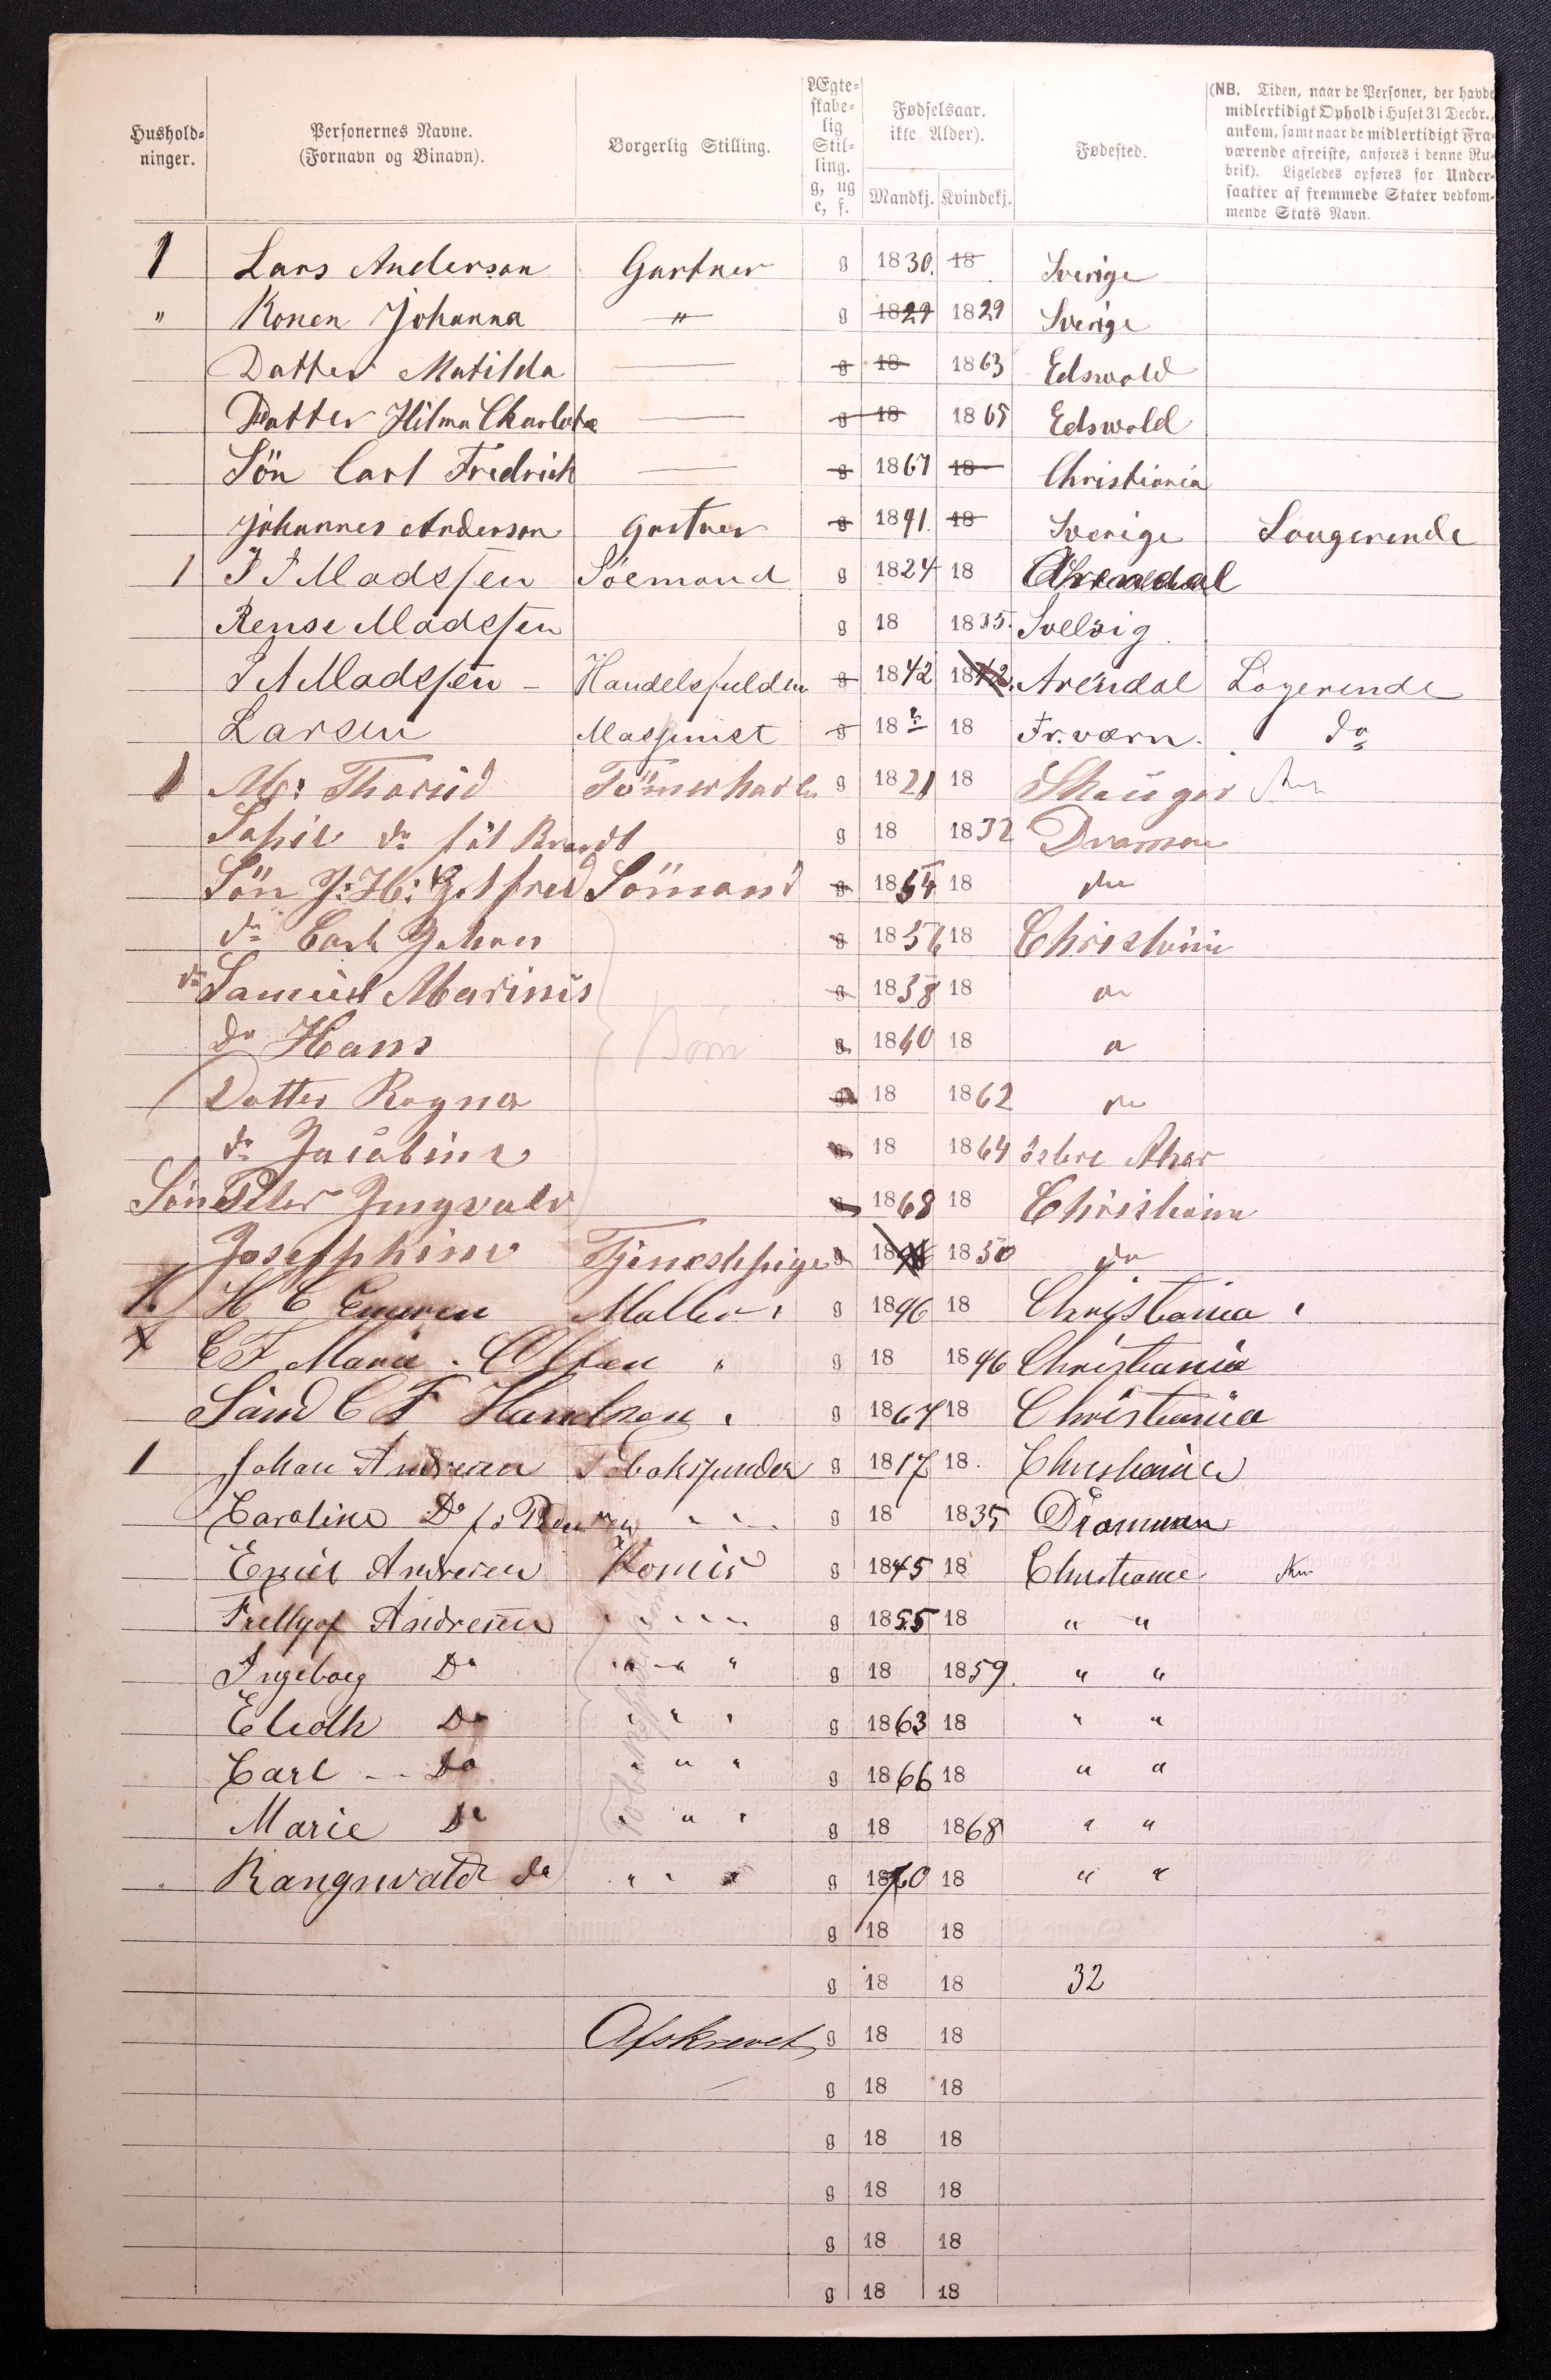 Hushold-
ninger.
Personernes Navne.
(Fornavn og Binavn).
Borgerlig Stilling.
Ægte-
skabe-
lig
Stil-
ling.
g, ug
e, f.
Fødselsaar.
ikke Alder).
Mandkj. Kvindekj.
Fødested.
(NB. Tiden, naar de Personer, der havde
midlertidigt Ophold i Huset 31 Decbr.,
ankom, samt naar de midlertidigt Fra-
værende afreiste, anføres i denne Ru-
brik). Ligeledes opføres for Under-
saatter af fremmede Stater vedkom-
mende Stats Navn.
1 Lars Anderson Gartner g 1830. 18 Sverige
" Konen Johanna " g 1829 1829 Sverige
Datter Matilda — g 18 1863 Edswold
Datter Hilma Charlotta — g 18 1865 Edswold
Sön Carl Fredrich — g 1867 18 Christiania
Johannes Anderson Gartner g 1841. 18 Sverige Lougerende
1 Madssen Söemand g 1824 18 Arendal
Rense Madssen g 18 1835. Svelvig
Madssen - g 1842 1842. Arendal Logerende
Larsen Massinist g 18 18 Fr.værn. do
1 g 1821 18
do föt Brandt g 18 1832 Dramen
Sön J: H: Gotfred Sömand g 1854 18 do
do Carl Johan g 1856 18 Christiania
do Samuel Marinus g 1858 18 do
do Hans Börn g 1860 18 do
Datter Ragna g 18 1862 do
do Jacobine g 18 1864 Aker
Sön Peter Jngvald g 1868 18 Christiania
Josephine Tjenestepige g 18 1850 do
1. H C Maller. g 1846 18 Christiania.
x C F Maria. Olsen " g 18 1846 Christiania
C F g 1867 18 Christiania
1 Johan Andresen Tobakspinder g 1817 18. Christiania
Caroline Do f: " " g 18 1835 Dramman
Emil Andresen Komis g 1845 18 Christiania
Andresen " " " g 1855 18 " "
Ingeborg Do " " " g 18 1859. " "
Do " " " g 1863 18 " "
Carl -- Do " " " g 1866 18 " "
Marie Do " " " g 18 1868 " "
Rangnvald do " " " g 1870 18 " "
g 18 18
g 18 18 32
Afskrevet g 18 18
g 18 18
g 18 18
g 18 18
g 18 18
g 18 18